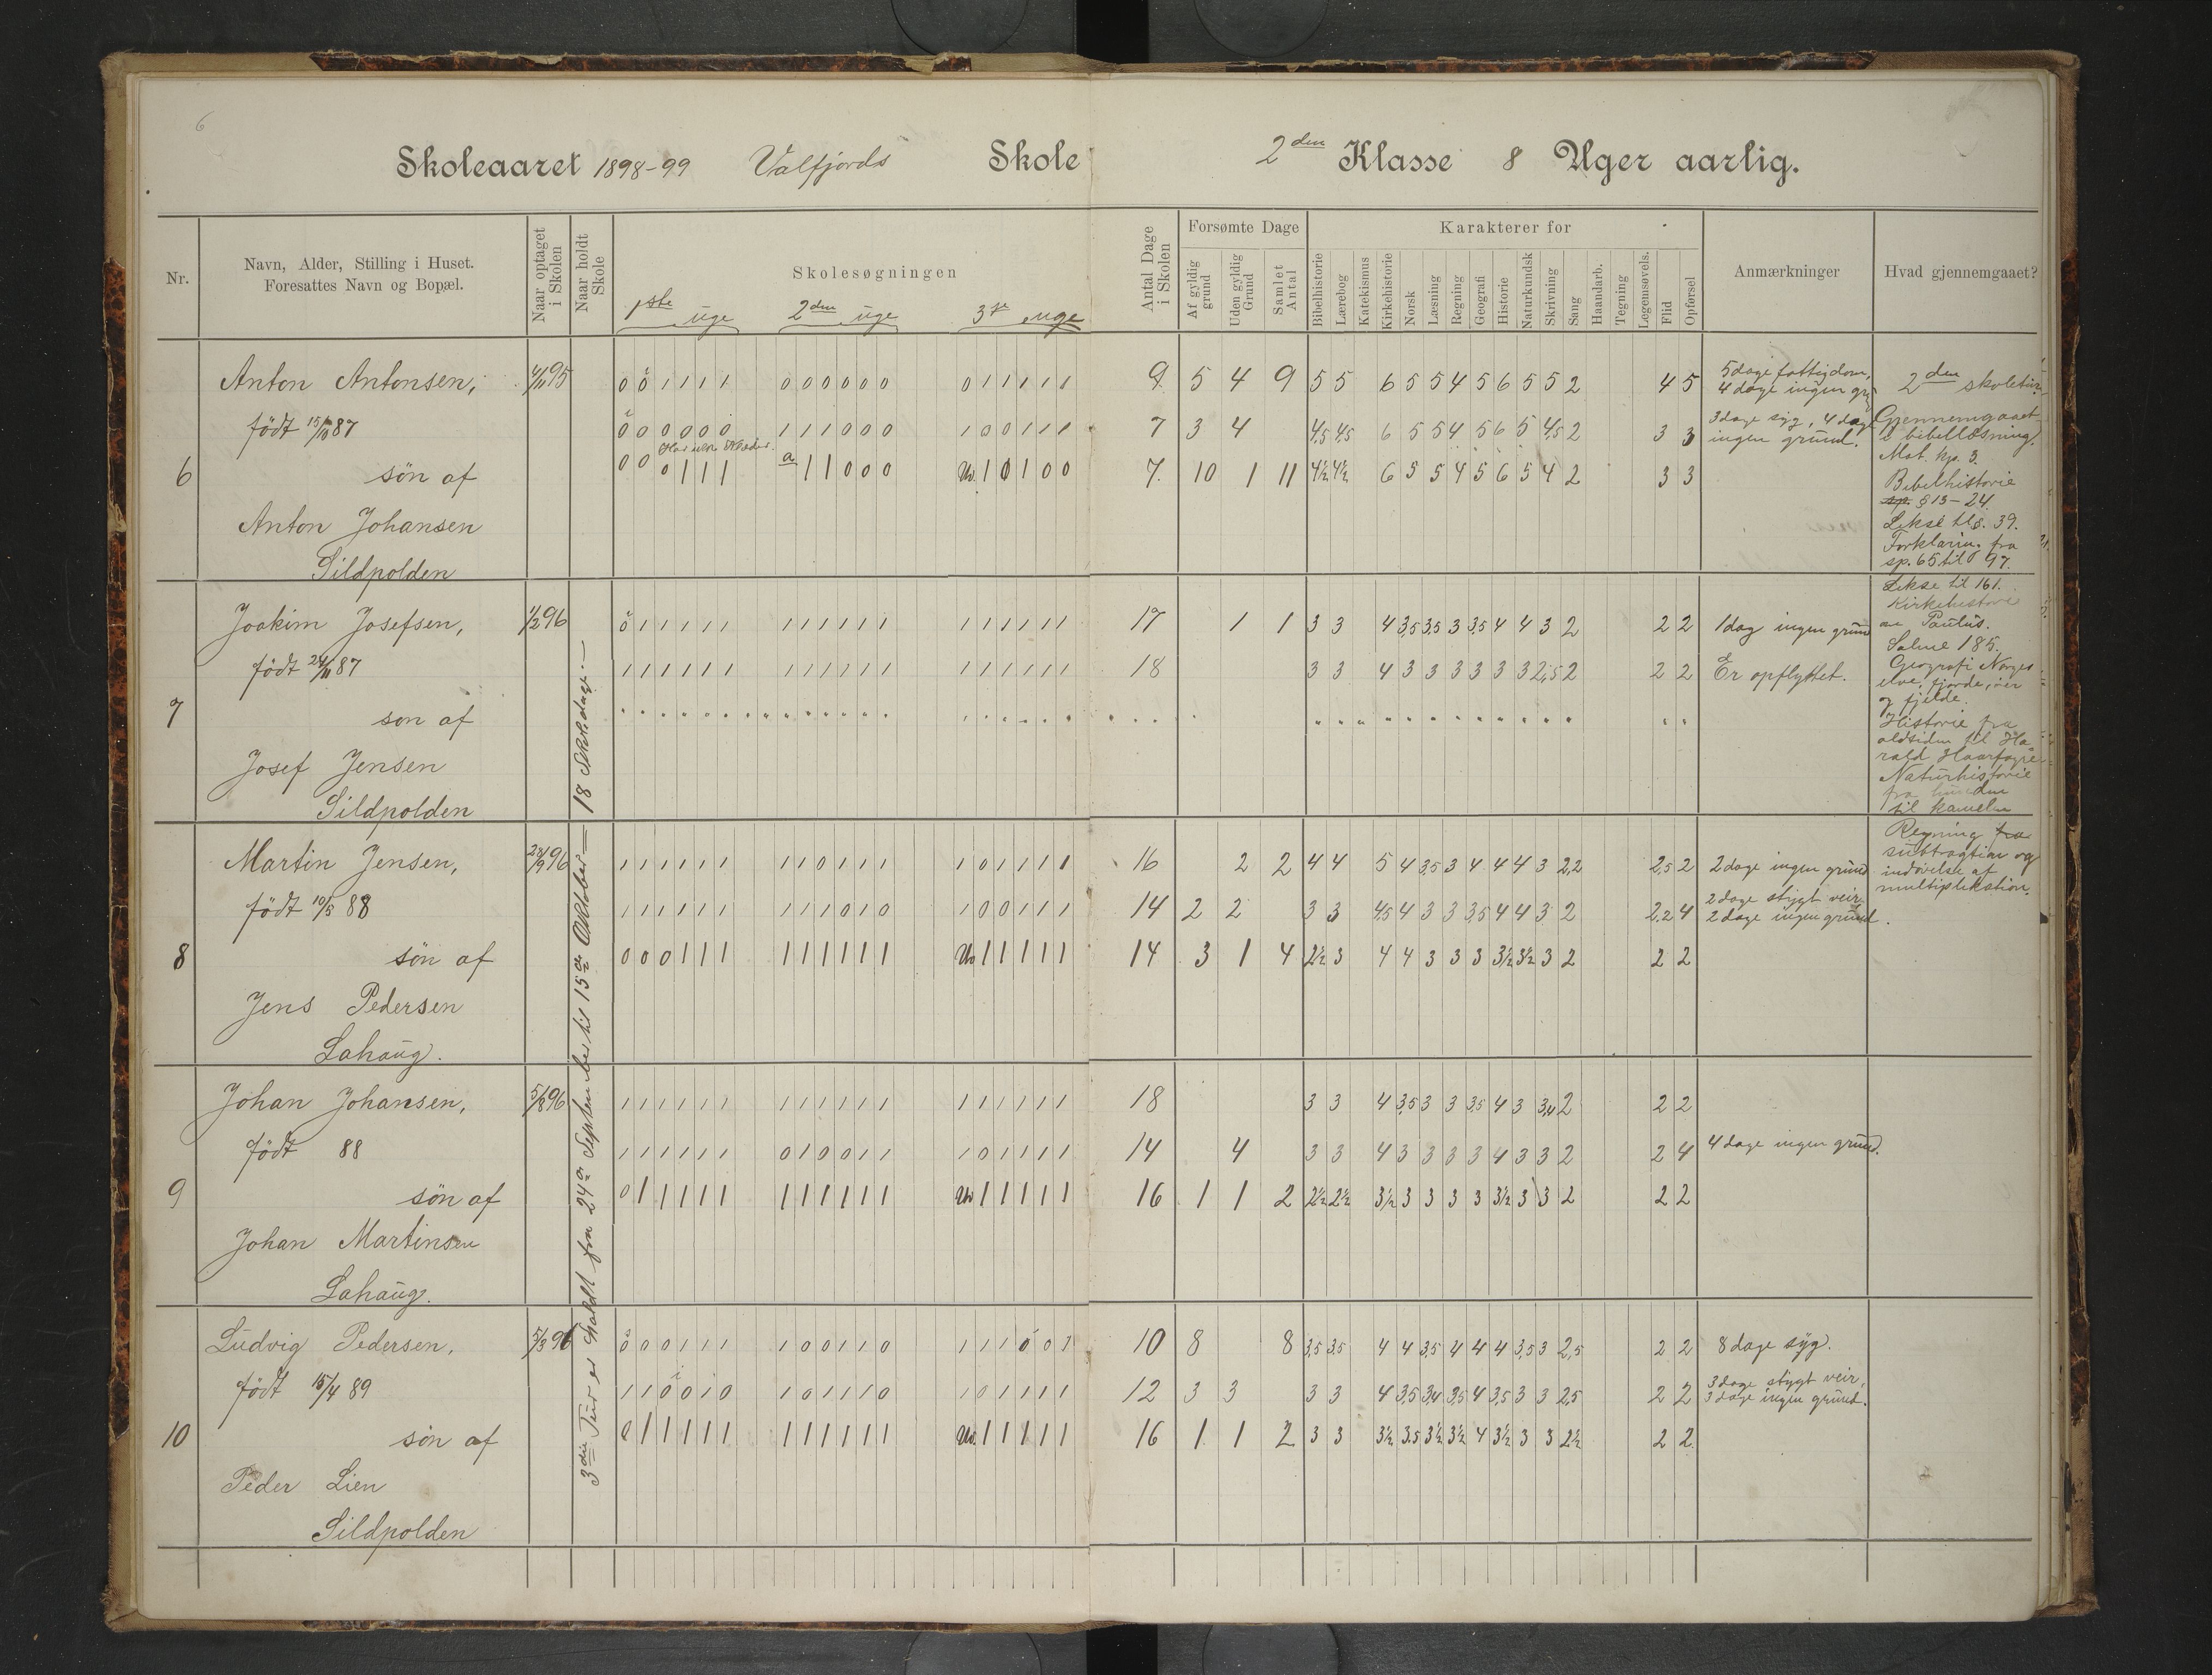 6
Skoleaaret 1898-99 Valfjords Skole 2den Klasse 8 Uger aarlig.
Nr.
Navn, Alder, Stilling i Huset.
Foresattes Navn og Bopæl.
Naar optaget i Skolen
Naar holdt Skole
Skolesøgningen
1ste uge 2den uge 3de uge
Antal Dage i Skolen
Forsømte Dage
Af gyldig grund
Uden gyldig Grund
Samlet Antal
Karakterer for
Bibelhistorie
Lærebog
Katekismus
Kirkehistorie
Norsk
Læsning
Regning
Geografi
Historie
Naturkundsk
Skrivning
Sang
Haandarb.
Tegning
Legemsøvels.
Flid
Opførsel
Anmærkninger
Hvad gjennemgaaet?
3die Tür er holdt fra 24de September til 15de Oktober — 18 Skoledage. —
6
Anton Antonsen, 4/11 95 0 0 1 1 1 1 0 0 0 0 0 0 0 1 1 1 1 1 9 5 4 9 5 5 6 5 5 4 5 6 5 5 2 4 5
født 15/10 87 0 0 0 0 0 0 1 1 1 0 0 0 1 0 0 1 1 1 7 3 4 4,5 4,5 6 5 5 4 5 6 5 4,5 2 3 3
Har ikke Klæder.
søn af 0 0 0 1 1 1 a 1 1 0 0 0 Uv. 1 0 1 0 0 7 10 1 11 4½ 4½ 6 5 5 4 5 6 5 4 2 3 3
Anton Johansen
Sildpolden
5 dage fattigdom,
4 dage ingen grü
3 dage syg, 4 dage
ingen gründ.
7
Joakim Josefsen, 1/2 96 0 1 1 1 1 1 1 1 1 1 1 1 1 1 1 1 1 1 17 1 1 3 3 4 3,5 3,5 3 3,5 4 4 3 2 2 2 1 dag ingen gründ
født 24/11 87 1 1 1 1 1 1 1 1 1 1 1 1 1 1 1 1 1 1 18 3 3 4 3 3 3 3 3 3 2,5 2 2 2 Er opflyttet.
søn af
Josef Jensen
Sildpolden
8
Martin Jensen, 28/9 96 1 1 1 1 1 1 1 1 0 1 1 1 1 0 1 1 1 1 16 2 2 4 4 5 4 3,5 3 4 4 4 3 2,2 2,5 2 2 dage ingen gründ
født 10/5 88 1 1 1 1 1 1 1 1 1 0 1 0 1 0 0 1 1 1 14 2 2 3 3 4,5 4 3 3 3,5 4 4 3 2 2,2 4 2 dage stygt veir
2 dage ingen gründ.
søn af 0 0 0 1 1 1 1 1 1 1 1 1 Uv 1 1 1 1 1 14 3 1 4 2½ 3 4 4 3 3 3 3½ 3½ 3 2 2 2
Jens Pedersen
Lahaüg.
9
Johan Johansen, 5/8 96 1 1 1 1 1 1 1 1 1 1 1 1 1 1 1 1 1 1 18 3 3 4 3,5 3 3 3,5 4 3 3,4 2 2 2
født 88 1 1 1 1 1 1 0 1 0 0 1 1 1 0 1 1 1 1 14 4 3 3 4 3 3 3 3 4 3 3 2 2 4 4 dage ingen gründ.
søn af 0 1 1 1 1 1 1 1 1 1 1 1 Uv 1 1 1 1 1 16 1 1 2 2½ 2½ 3½ 3 3 3 3 3½ 3 3 2 2 2
Johan Martinsen
Lahaüg.
10
Lüdvig Pedersen, 5/3 96 0 0 0 1 1 1 1 0 0 1 1 0 1 1 1 0 0 1 10 8 8 3,5 3,5 4 4 3,5 4 4 4 3,5 3 2,5 2 2 8 dage syg.
født 15/4 89 1 1 0 0 1 0 1 0 1 1 1 0 1 0 1 1 1 1 12 3 3 3 3 4 3,5 3,4 3,5 4 3,5 3 3 2,5 2 2 3 dage stygt veir,
3 dage ingen gründ.
søn af 0 1 1 1 1 1 1 1 1 1 1 1 Uv. 1 1 1 1 1 16 1 1 2 3 3 3½ 3,5 3½ 3½ 4 3½ 3 3 2½ 2 2
Peder Lien
Sildpolden
2den skoletür
Gjennemgaaet
i bibellæsning.
Mat. kp. 3.
Bibelhistorie
sp. § 13 - 24.
Lekse til § 39.
Forklarin. fra
sp. 65 til 97.
Lekse til 161.
Kirkehistorie
om Paulüs.
Salme 185.
Geografi Norges
elve, fjorde, øer
og fjelde.
Historie fra
oldtiden til Ha-
rald Haarfagre
Natürhistorie
fra hünden
til kamelen
Regning fra
sübtragtion og
indøvelse af
multiplikation.